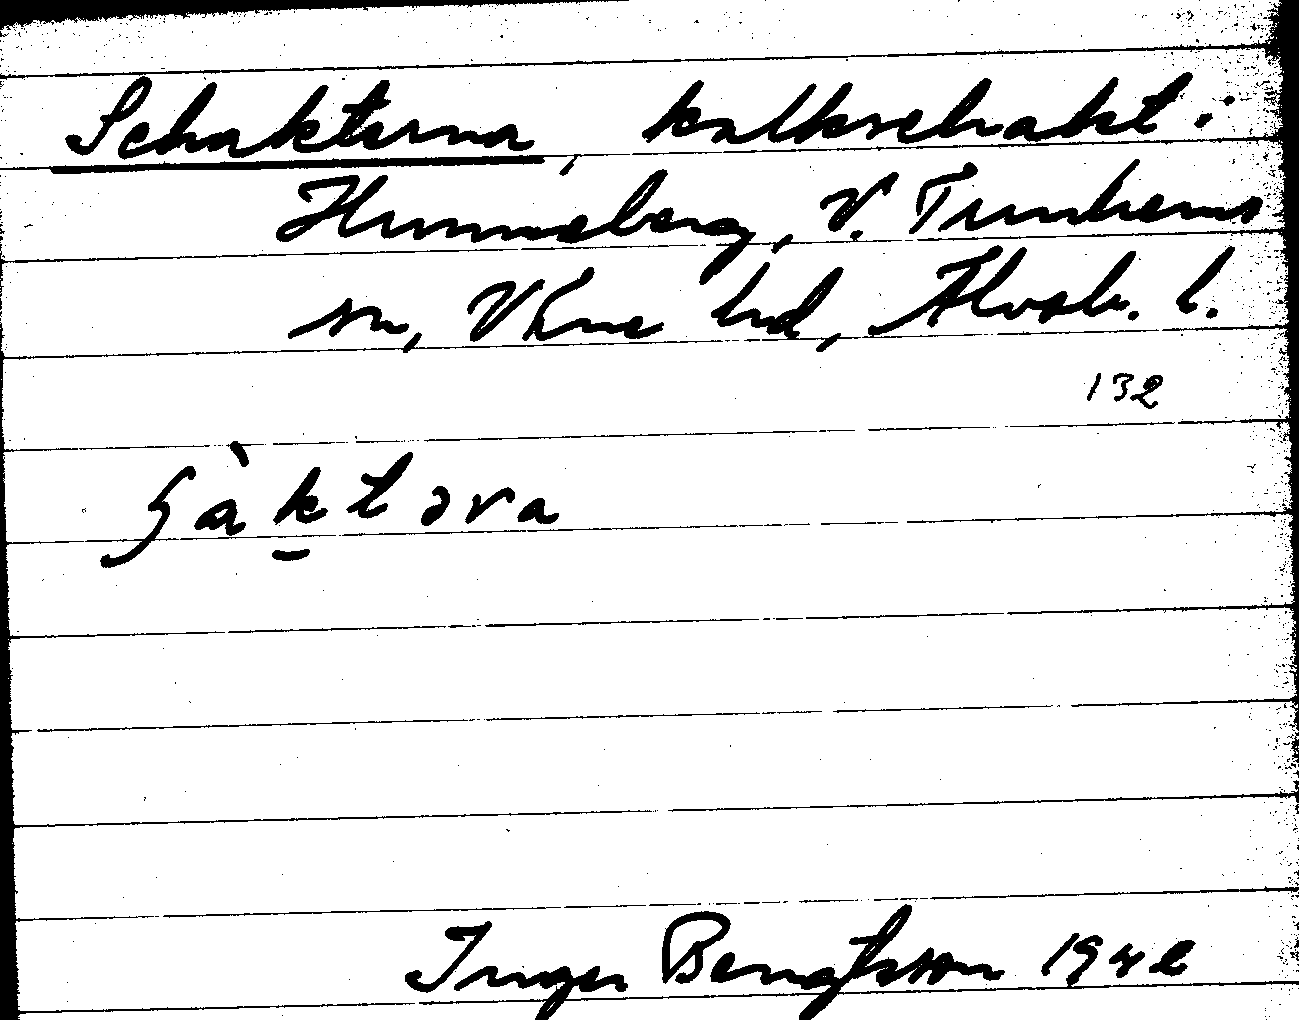 Schakterna, kalkschakt i
Hunneberg, V. Tunhems
sn, Väne hd, Älvsb. l.
132
ʃàk̠təra
Inger Bengtsson 1942